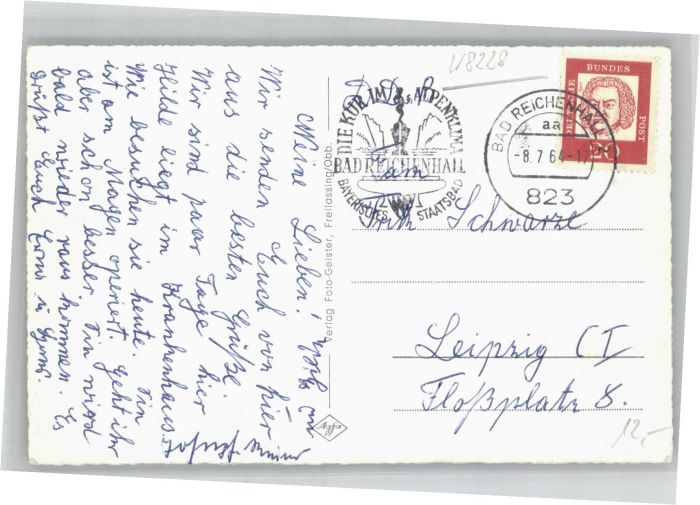 W8228
D D R
DIE KUR IM ALPENKLIMA
BAD REICHENHALL
BAYERISCHES STAATSBAD
BAD REICHENHALL 2
aa
-8.7.64-17
823
DEUTSCHE BUNDESPOST
20
Fam
Fritz Schwarze
Leipzig C I
Floßplatz 8.
12,-
Verlag Foto-Geister, Freilassing/obb.
Meine Lieben!
Wir senden Euch von hier
aus die besten Grüße.
Wir sind paar Tage hier
Hilde liegt im Krankenhaus.
Wir besuchen sie heute. Sie
ist am Magen operiert. Geht ihr
aber schon besser. Sie wird
bald wieder raus kommen. Es
grüßt Euch Erna u.